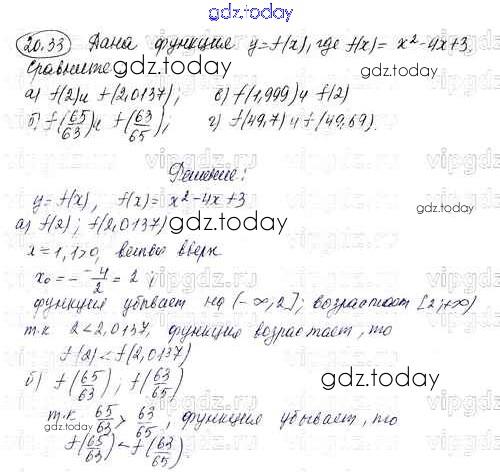 gdz.today
20.33 Дана функция y=f(x), где f(x)= x²-4x+3.
Сравните gdz.today
а) f(2) и f(2,0137); в) f(1,999) и f(2)
б) f(65/63) и f(63/65); г) f(49,7) и f(49,69).
vipgdz.ru
Решение:
y=f(x), f(x)=x²-4x+3
gdz.today
а) f(2); f(2,0137)
gdz.today
x=1, 1>0, ветви вверх
gdz.today
x₀=-\frac{-4}{2}=2;
функция убывает на (-∞;2]; возрастает [2;+∞)
т.к 2<2,0137, функция возрастает, то
f(2)<f(2,0137)
gdz.today
б) f(65/63); f(63/65)
т.к 65/63 > 63/65, функция убывает, то
f(65/63)<f(63/65).
gdz.today